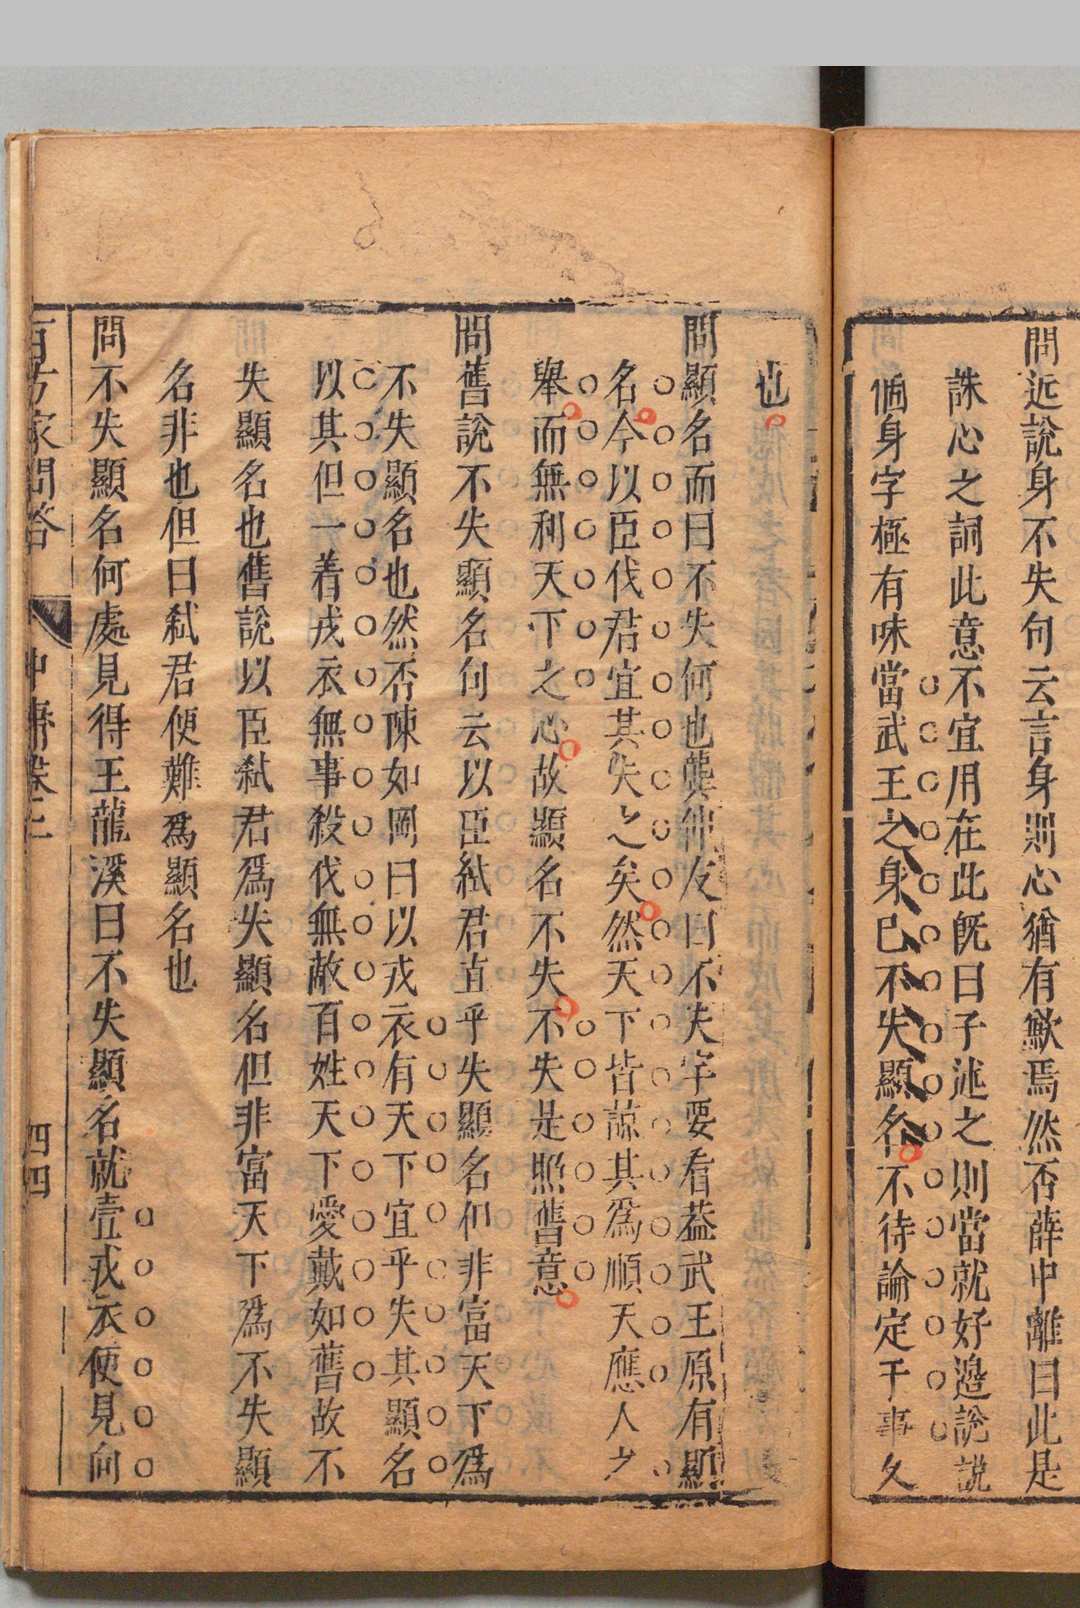 問近說身不失句云言身則心猶有歉焉然否薛中離曰此是
誅心之詞此意不宜用在此旣曰子述之則當就好邉說說
個身字極有味當武王之身已不失顯名不待論定千事久
也
問顯名而曰不失何也龔仲友曰不失字要看葢武王原有顯
名今以臣伐君宜其失之矣然天下皆諒其爲順天應人之
舉而無利天下之心故顯名不失不失是照舊意
問舊說不失顯名句云以臣弒君直乎失顯名但非富天下爲
不失顯名也然否陳如岡曰以戎衣有天下宜乎失其顯名
以其但一着戎衣無事殺伐無敵百姓天下愛戴如舊故不
失顯名也舊說以臣弒君爲失顯名但非富天下爲不失顯
名非也但曰弒君便難爲顯名也
問不失顯名何處見得王龍溪曰不失顯名就壹戎衣便見向
百方家問答 中庸卷二 四四